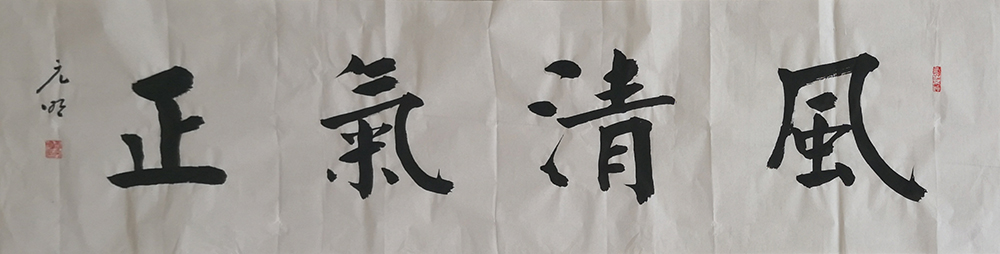 風清氣正
元明